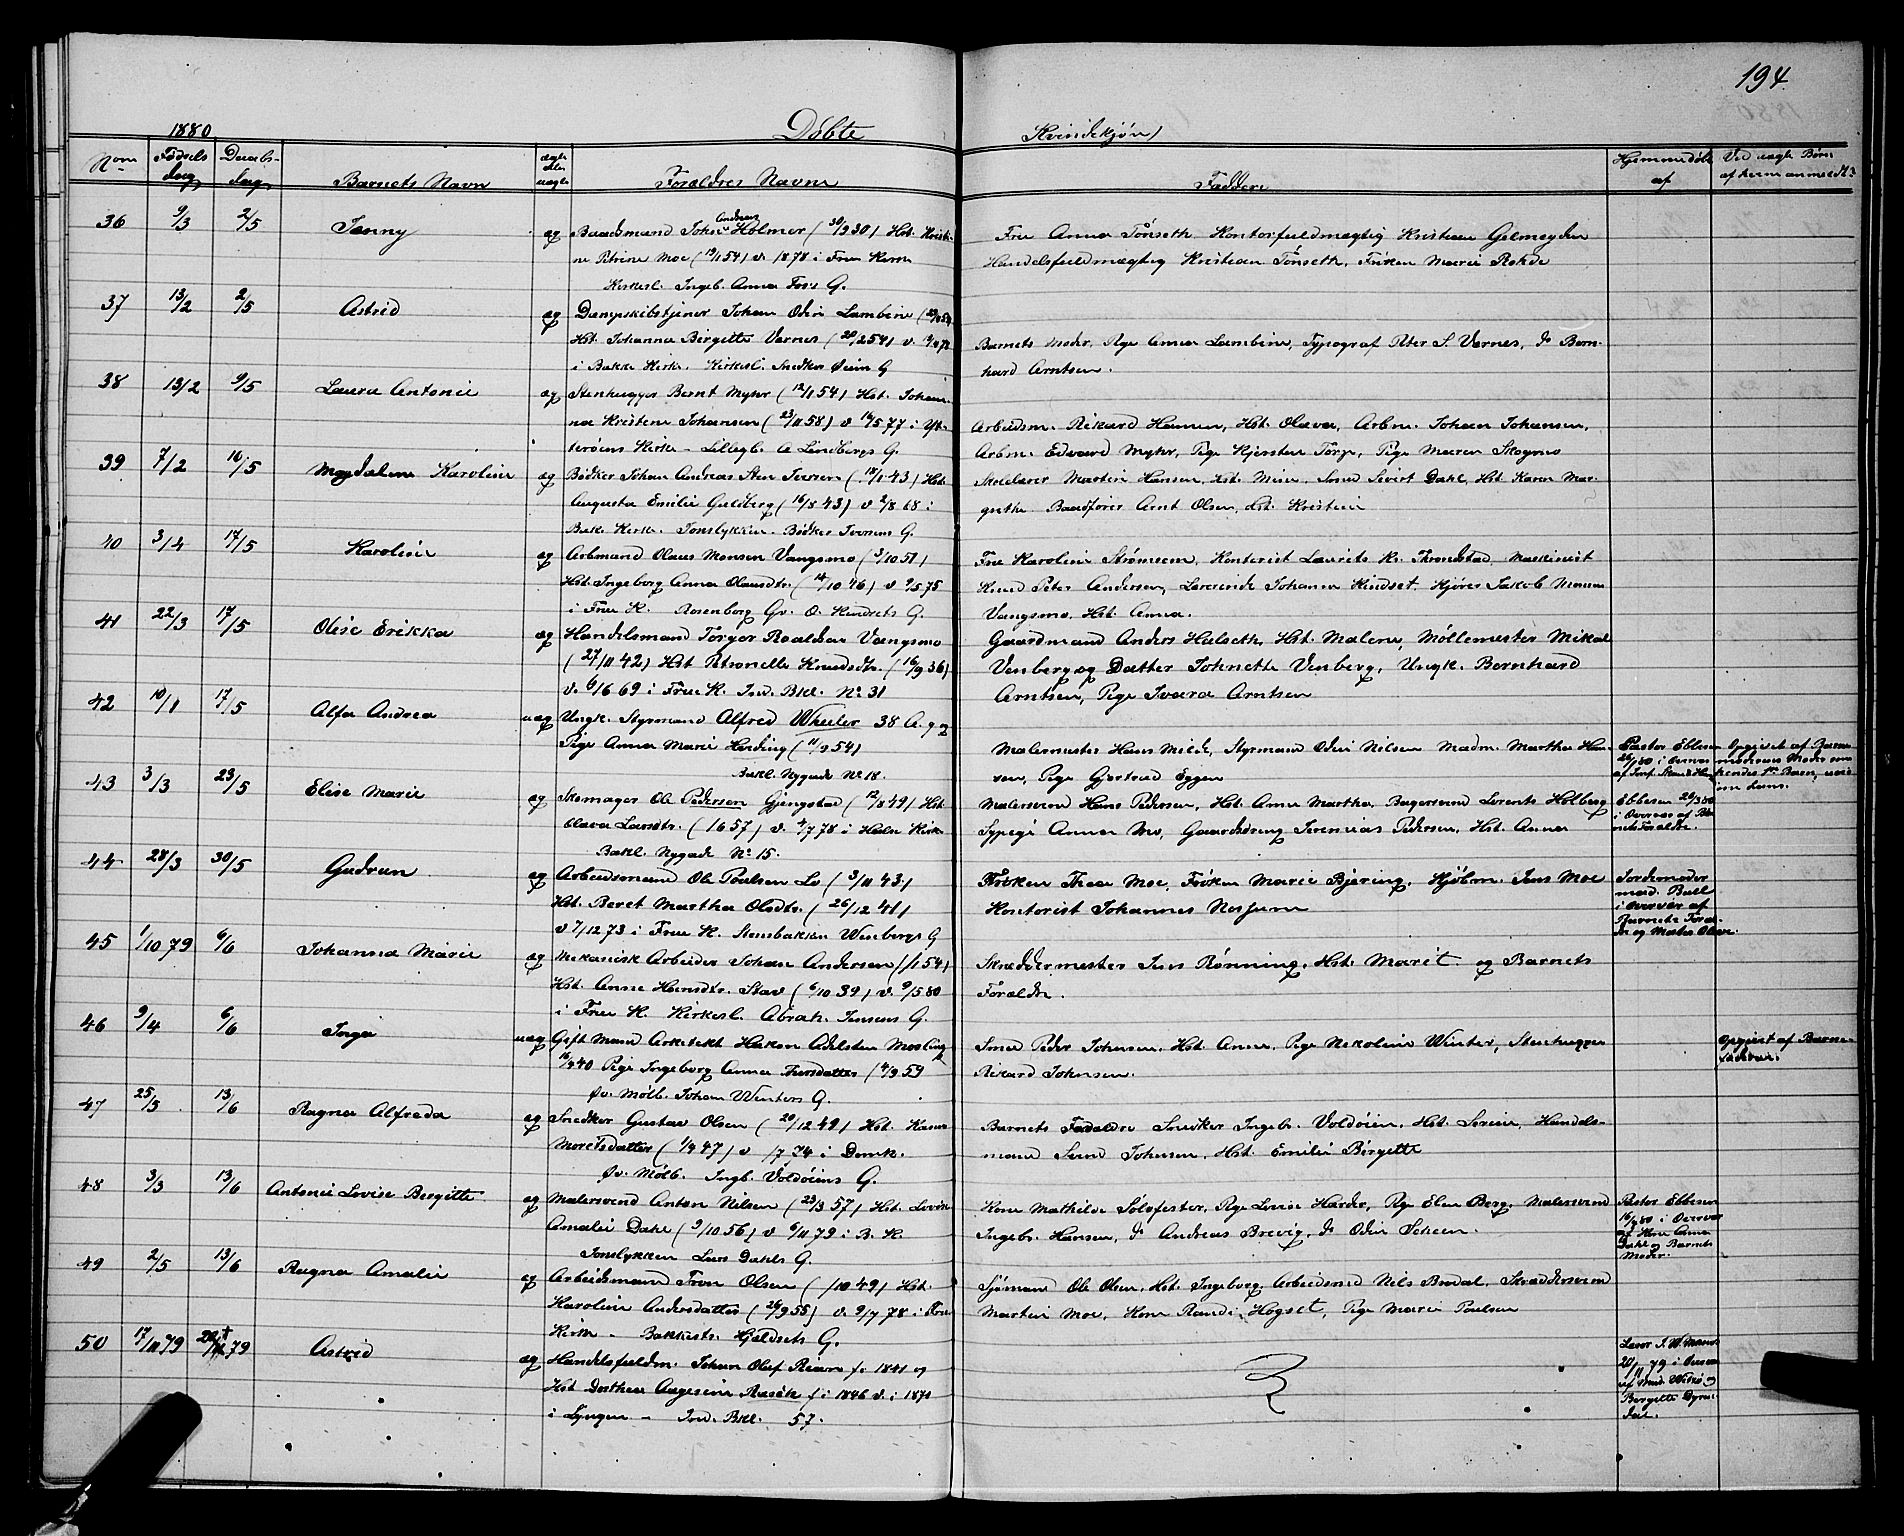 194
1880
Døbte
Kvindekjøn
No
Fødsels Dag
Daabs-Dag
Barnets Navn
ægte eller uægte
Forældres Navne
Faddere
Hjemmedøbt af
Ved uægte Børn
36 9/3 2/5 Jenny æg
Baadsmand Johs Andreas Holmer (30/9 30) Hst.
ne Petrine Moe (19/1 54) v. 1878 i Frue Kirke
Kirkesl. Ingeb. Anna Foss G.
Fru Anna Tønseth, Kontorfuldmægtig Kristian Gelmeyden
Handelsfuldmægtig Kristian Tønseth, Frøken Marie Rokde
37 13/2 2/5 Astrid æg
Dampskibstjener Johan Odin Lambine
Hst. Johanna Birgitte Værnes (20/2 54) v.
i Bakke Kirke. Kirkesl. Snedker Øien G
Barnets Moder, Pige Anna Lambine, Typograf Peter S. Værnes, do Bern-
hard Arntsen.
38 13/2 9/5 Laura Antonie æg
Stenhugger Bernt Myhr (12/1 54) Hst. Johan-
na Kristine Johansen (23/11 58) v 14/5 77 i Yt-
terøens Kirke - Lillegb. A Lundbergs G.
Arbeidsm. Rikard Hansen, Hst. Olava, Arbm. Johan Johansen,
Arbm. Edvard Myhr, Pige Kjersten Torp, Pige Maren Skogmo
39 7/2 16/5 Magdalena Karoline æg
Bødker Johan Andreas Sten Iversen (18/1 43) Hst.
Augusta Emilie Guldberg (16/8 43) v 2/8 68 i
Bake Kirke. Tonslykken. Bødker Iversens G.
Skolelærer Martin Hansen, Hst. Mine, Smed Sivert Dahl, Hst. Karen Mar-
grethe Baadfører Arnt Olsen, Hst. Kristine
40 3/4 17/5 Karoline æg
Arbmand Olaus Monsen Vangsmo (3/10 51)
Hst. Ingeborg Anna Olausdtr. (14/10 46) v 9/5 75
i Frue K. Rosenborg Gv. O. Kindsets G.
Fru Karoline Strømsem, Kontorist Laurits K. Throndstad, Maskinist
Knud Peter Andersen, Lærerinde Johanna Kindset, Kjører Jakob Monsen
Vangsmo, Hst. Anna.
41 22/3 17/5 Olise Erikka æg
Handelsmand Torger Roaldsen Vangsmo
(27/11 42) Hst Petronelle Knudsdtr. (16/9 36)
v. 6/1 69 i Frue K. Ind. Bkl. No 31
Gaardmand Anders Halseth, Hst. Malene, Møllemester Mikal
Venberg og Datter Johnette Venberg, Ungk. Bernhard
Arntsen, Pige Ivara Arntsen
42 10/1 17/5 Alfa Andrea uæg
Ungk. Styrmand Alfred Wheeler 38 A. g og
Pige Anna Marie Harding (11/9 54)
Bakl. Nygade No 18.
Malermester Hans Milde, Styrmand Odin Nilsen Madm. Martha Han-
sen, Pige Gjertrud Eggen
Pastor Ebbesen
Opgivet af Barne-
moderens Moder
hendes 1ste Barn,
43 3/3 23/5 Elise Marie æg
Skomager Ole Pedersen Gjengstad (12/8 49) Hst
Olava Larsdtr. (1657) v. 4/7 78 i Hal Kirke
Bakl. Nygade No 15.
Malersvend Hans Pedersen, Hst. Anna Martha, Bagersvend Lorents Holberg
Sypige Anna Mo, Gaardsdreng Jeremias Pedersen, Hst. Anna
Ebbesen 28/3 80
i Overvær af Bar-
nets Forældre.
44 28/3 30/5 Gudrun æg
Arbeidsmand Ole Poulsen Lo (3/11 43)
Hst. Beret Martha Olsdtr. (26/12 41)
v 7/12 73 i Frue K. Stensbakken Winbergs G
Frøken Thea Moe, Frøken Marie Bjering, Kjøbm. Jens Moe
Kontorist Johannes Nossum
Jordemoder
mad. Bull
i Overvær af
Barnets Foræl-
dre og Maler Olsen.
45 1/10 79 6/6 Johanna Marie æg
Mekanisk Arbeider Johan Andersen
Hst. Anne Hansdtr. Stav (6/10 39) v. 9/5 80
i Frue K. Kirkesl. Abrah. Jensens G.
Skræddermester Jens Rønning, Hst. Marit og Barnets
Forældre.
46 9/4 6/6 Inga uæg
Gift Mand Arkitekt Hakon Adelsten Mosling
16/9 40 Pige Ingeborg Anna Iversdatter (4/9 59
Øv. Mølb. Johan Winters G.
Smed Peder Johnsen, Hst. Anna, Pige Nikoline Winter, Stenhugger
Rikard Johnsen.
Opgivet af Barne-
faderen.
47 25/3 13/6 Ragna Alfreda æg
Snedker Gustav Olsen (20/12 49) Hst. Karen
Moretsdatter (1/9 47) v /7 74 i Domk.
Øv. Mølb. Ingb. Voldøiens G.
Barnets Forældre Snedker Ingeb. Voldøien, Hst. Serine, Handels-
mand Johnsen, Hst. Emilie Birgitte
48 3/3 13/6 Antonie Lovise Bergitte æg
Malersvend Anton Nilsen (23/3 57) Hst. Lovise
Amalie Dahl (3/10 56) v 6/11 79 i B. K.
Tonslykken Lars Dahls G.
Kone Mathilde Solofester, Pige Lovise Harder, Pige Elen Berg, Malersvend
Ingebr. Hansen, do Andreas Brevig, do Odin Scheen.
Pastor Ebbesen
i Overvær
af Kone Anna
Dahl og Barnets
Moder.
49 2/5 13/6 Ragna Amalie æg
Arbeidsmand Tron Olsen ( /10 49) Hst.
Karoline Andersdatter (26/9 55) v. 9/7 78 i Frue
Kirke - Bakkestr. Gjeldsets G.
Sjømand Ole Olsen, Hst. Ingeborg, Arbeidsmd Nils Bredal, Skræddersvend
Martin Moe, Kone Randi Hogset, Pige Marie Poulsen
50 17/11 79 20/11 79 Astrid æg
Handelsfuldm. Johan Oluf Riise f. 1841 og
Hst. Dorthea Angesine Rasch f i 1846 v. i 1871
i Lyngen - Ind. Bkl. 57.
20/11 79 i Overvær
Birgitte